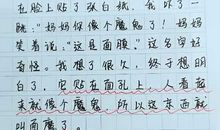 在脸上贴了张白纸。我吓了一
跳:“妈妈你像个魔鬼了!”妈妈
笑着说:“这是面膜。”这名字好
奇怪。我想了很久,终于想明
白了,它贴在面孔上,人看起
来就像个魔鬼,所以这东西就
叫面魔了。